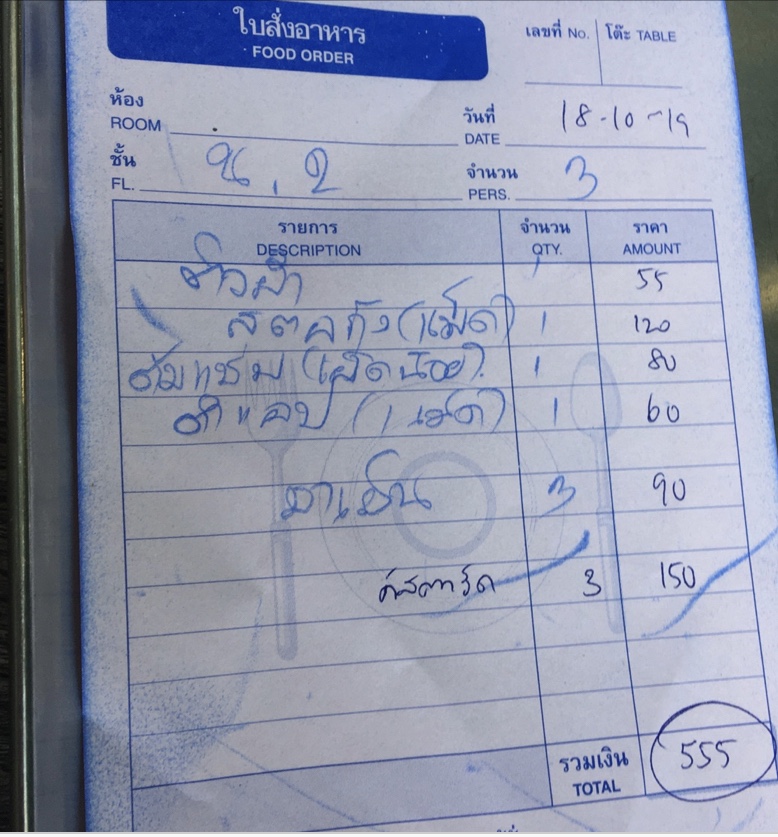 ใบสั่งอาหาร
FOOD ORDER
เลขที่ No. โต๊ะ TABLE
ห้อง
ROOM
วันที่
DATE 18-10-19
ชั้น
FL. น. 2
จำนวน
PERS. 3
รายการ จำนวน ราคา
DESCRIPTION QTY. AMOUNT
55
(1เม็ด) 1 120
(เผ็ดน้อย) 1 80
(1 เม็ด) 1 60
ชาเย็น 3 90
คัสตาร์ด 3 150
รวมเงิน
TOTAL 555